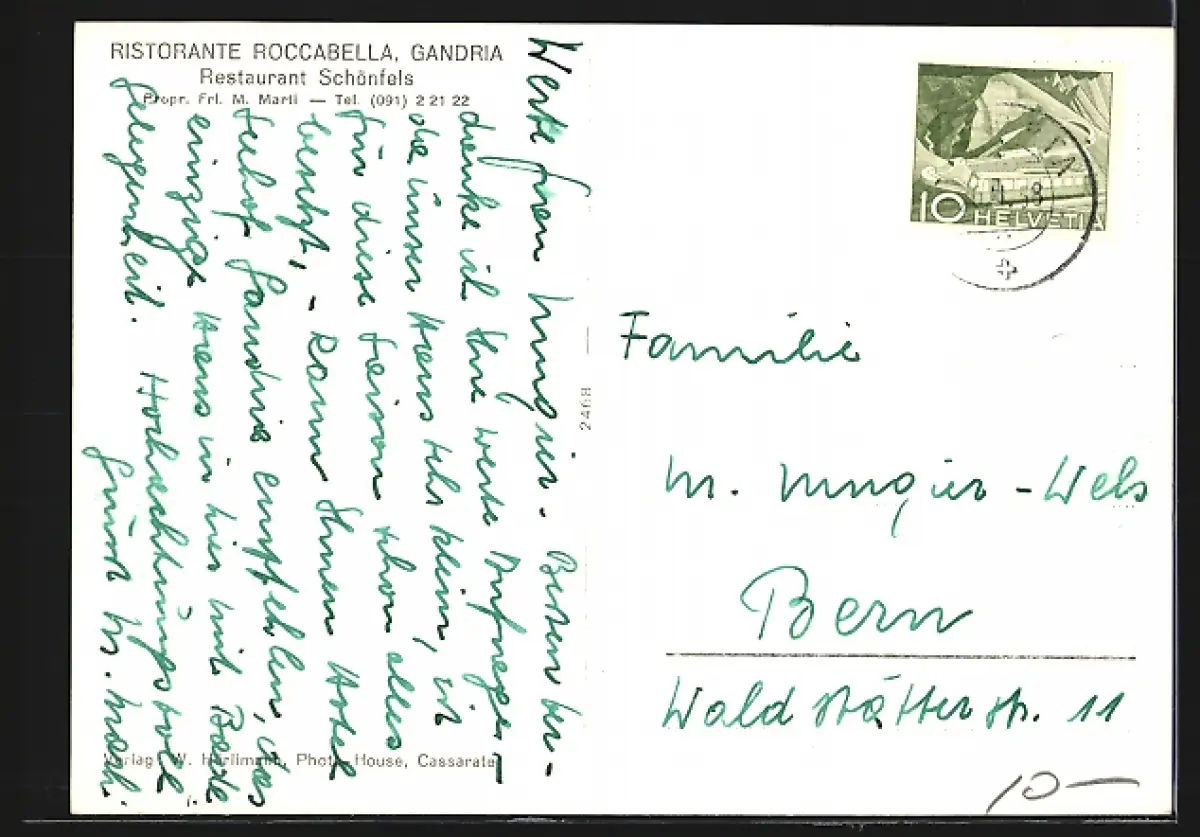 RISTORANTE ROCCABELLA, GANDRIA
Restaurant Schönfels
Propr. Frl. M. Marti — Tel. (091) 2 21 22
Werte Frau Besten
danke ich Ihre werte
da unser Haus sehr klein, ist
für diese Saison schon alles
besetzt, - kann Ihnen Hotel
Seehof Gandria empfehlen, das
einzige Haus in hier mit Bade
gelegenheit. Hochachtungsvoll
grüsst M. Marti.
Verlag W. Hürlimann, Photo House, Cassarate
2468
10 HELVETIA
Familie
M. - Wels
Bern
Waldstätterstr. 11
10 —